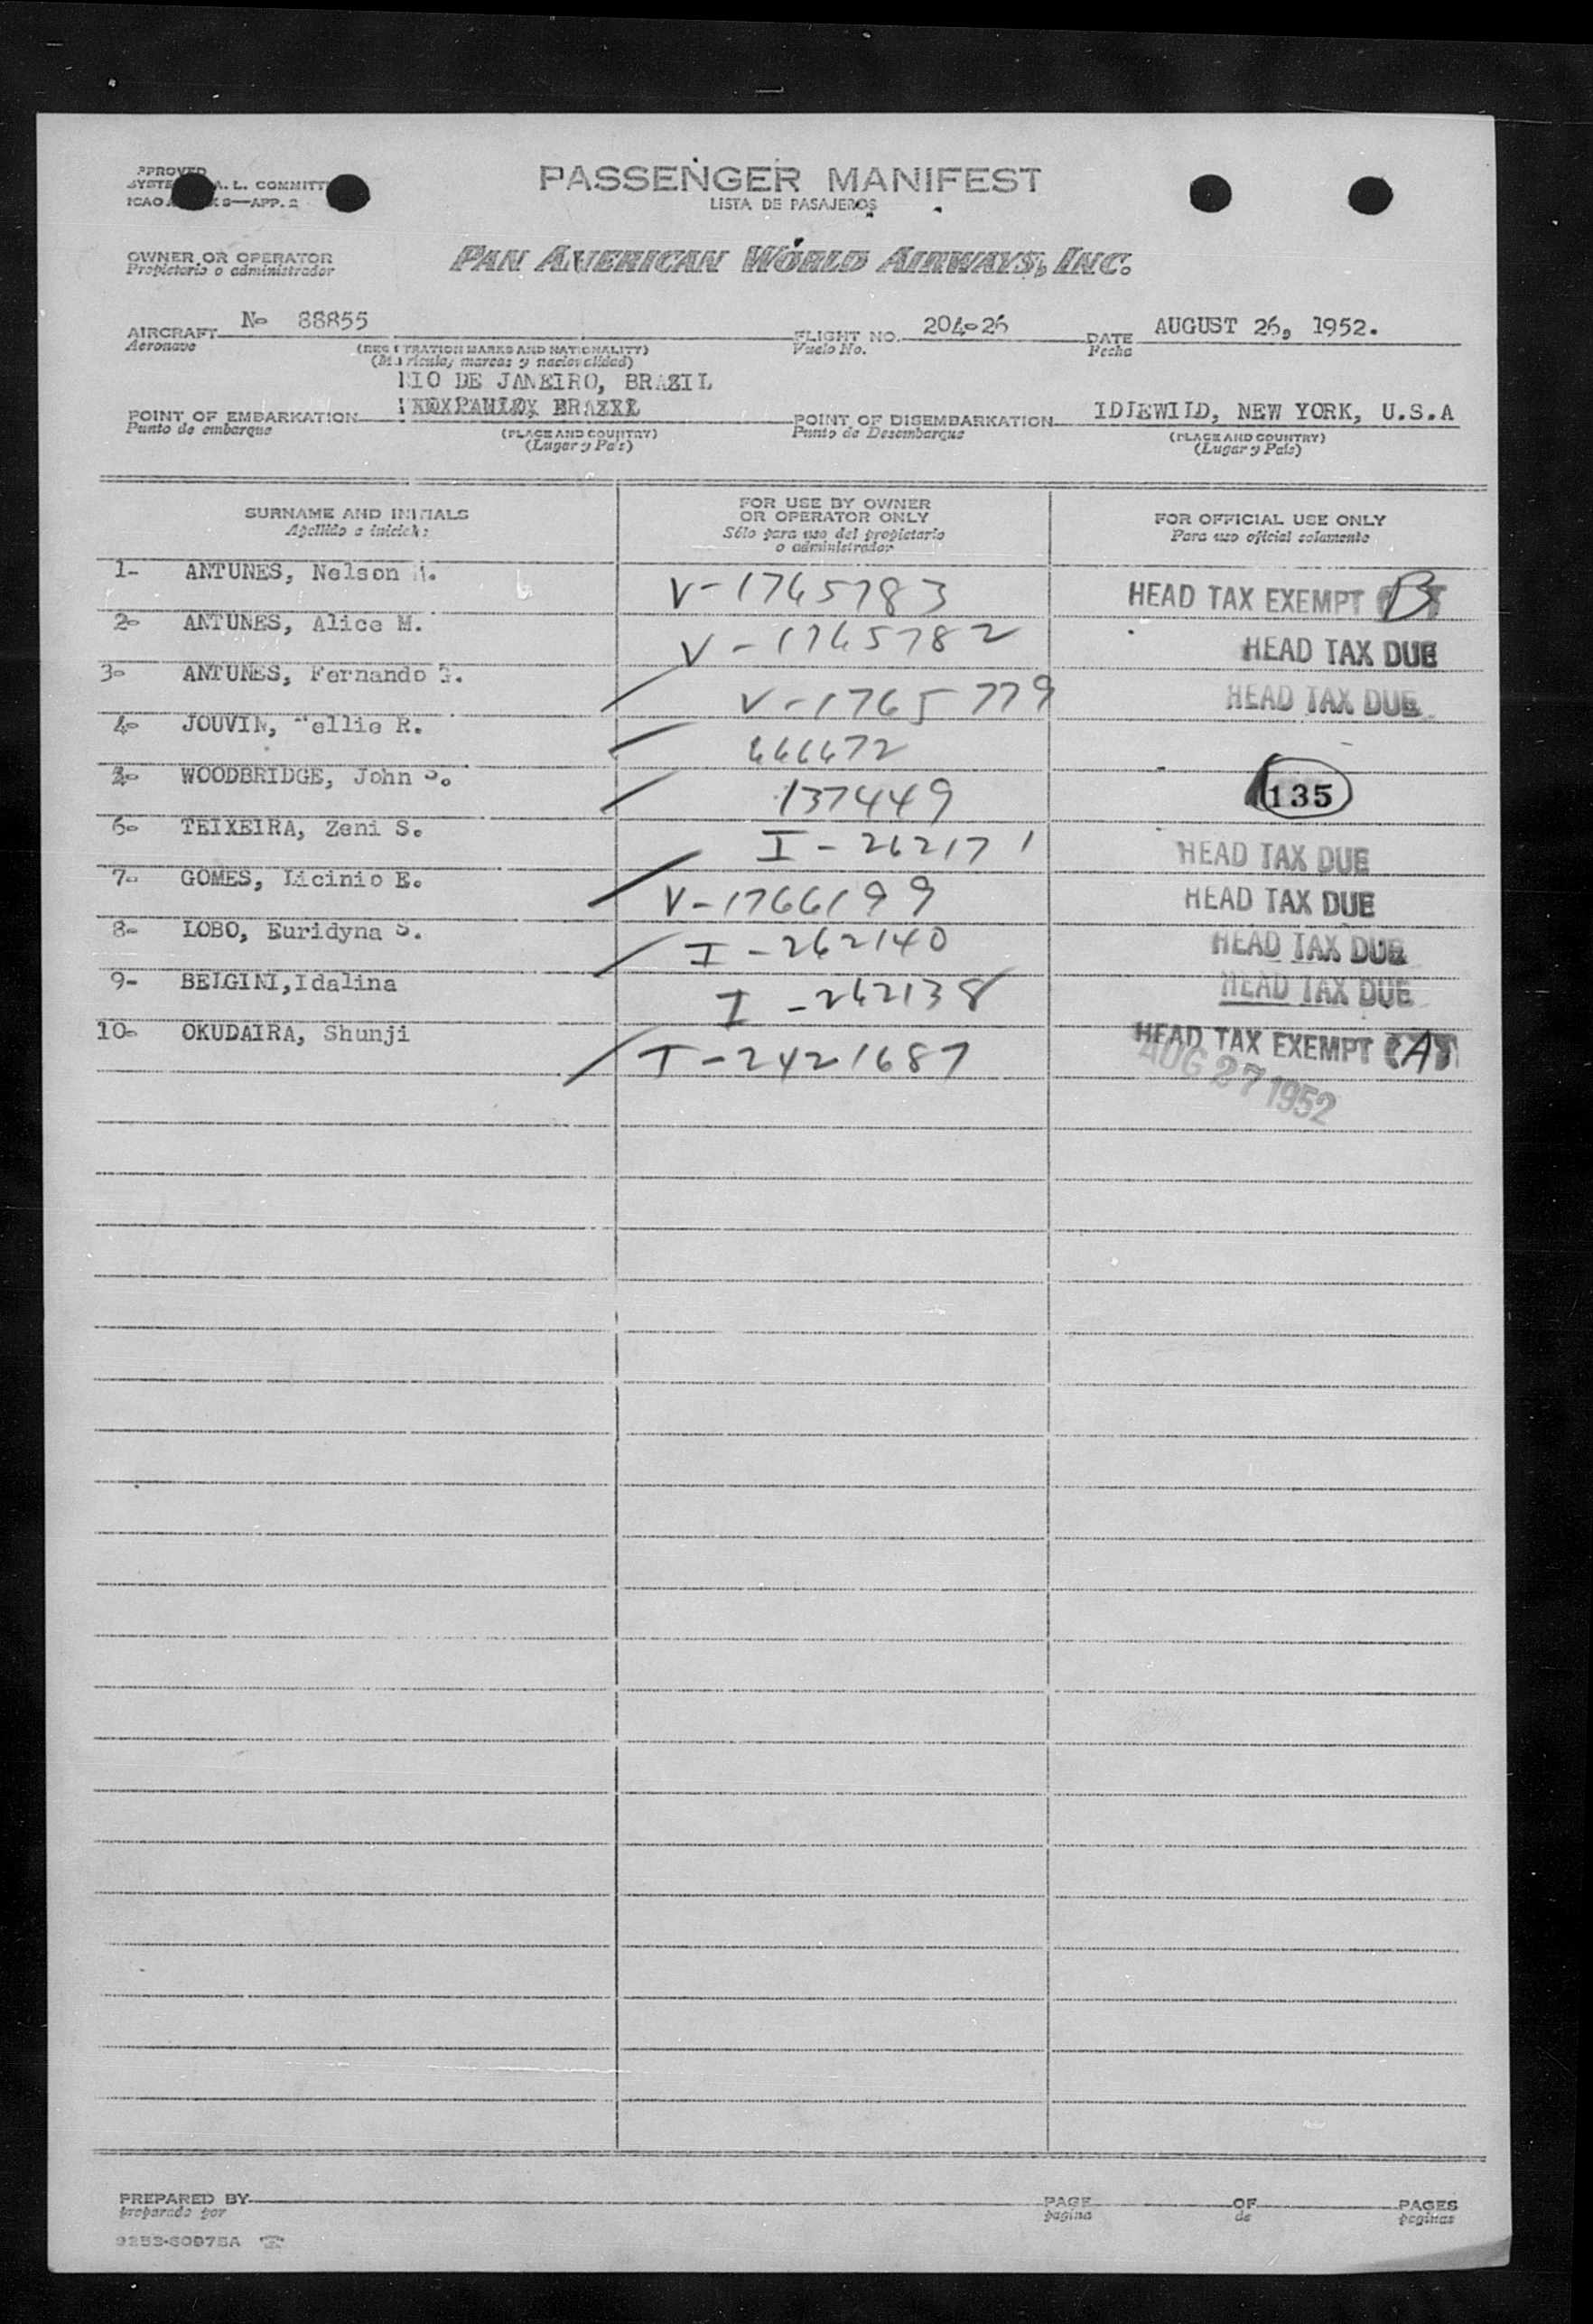 PASSENGER MANIFEST
LISTA DE PASAJEROS
A. L. COMMITT
ICAO 9—APP. 2
OWNER OR OPERATOR
Propietario o administrador
PAN AMERICAN WORLD AIRWAYS, INC.
AIRCRAFT No 88855 FLIGHT NO. 204-26 DATE AUGUST 26, 1952.
Aeronave (REGISTRATION MARKS AND NATIONALITY) Vuelo No. Fecha
(Matricula, marcas y nacionalidad)
RIO DE JANEIRO, BRAZIL
POINT OF EMBARKATION BRAZIL POINT OF DISEMBARKATION IDLEWILD, NEW YORK, U.S.A
Punto de embarque (PLACE AND COUNTRY) Punto de Desembarque (PLACE AND COUNTRY)
(Lugar y País) (Lugar y País)
SURNAME AND INITIALS FOR USE BY OWNER OR OPERATOR ONLY FOR OFFICIAL USE ONLY
Apellido e iniciales Sólo para uso del propietario o administrador Para uso oficial solamente
1- ANTUNES, Nelson V-1765783 HEAD TAX EXEMPT B
2- ANTUNES, Alice M. V-1765782 HEAD TAX DUE
3- ANTUNES, Fernando G. V-1765779 HEAD TAX DUE
4- JOUVIN, ellie R. 666672
WOODBRIDGE, John S. 137449 135
6- TEIXEIRA, Zeni S. I-262171 HEAD TAX DUE
7- GOMES, Licinio E. V-1766199 HEAD TAX DUE
8- LOBO, Euridyna S. I-262140 HEAD TAX DUE
9- BELGINI,Idalina I-262138 HEAD TAX DUE
10- OKUDAIRA, Shunji T-2421687 HEAD TAX EXEMPT (A)
AUG 27 1952
PREPARED BY PAGE OF PAGES
preparado por pagina de paginas
9253-60975A